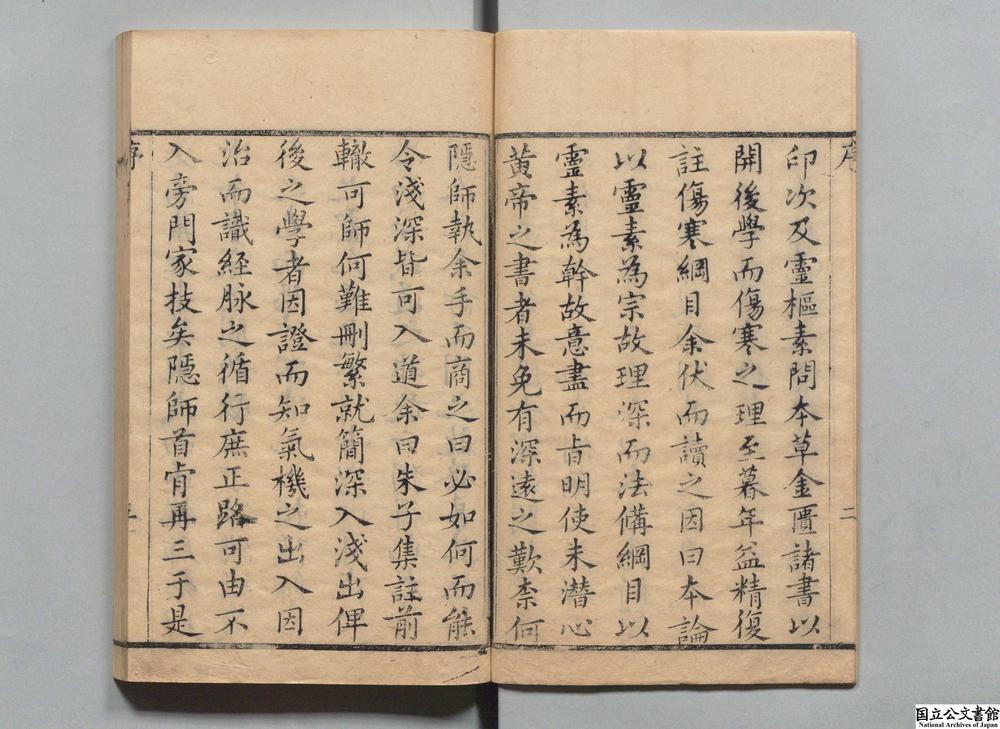 序
二
卯次及靈樞素問本草金匱諸書以
開後學而傷寒之理至暮年益精復
註傷寒綱目余伏而讀之因曰本論
以靈素為宗故理深而法備綱目以
靈素為幹故意盡而旨明使未潛心
黃帝之書者未免有深遠之歎柰何
隱師執余手而商之曰必如何而能
令淺深皆可入道余曰朱子集註前
轍可師何難刪繁就簡深入淺出俾
後之學者因證而知氣機之出入因
治而識經脉之循行庶正路可由不
入旁門家技矣隱師首肯再三于是
序
三
国立公文書館
National Archives of Japan